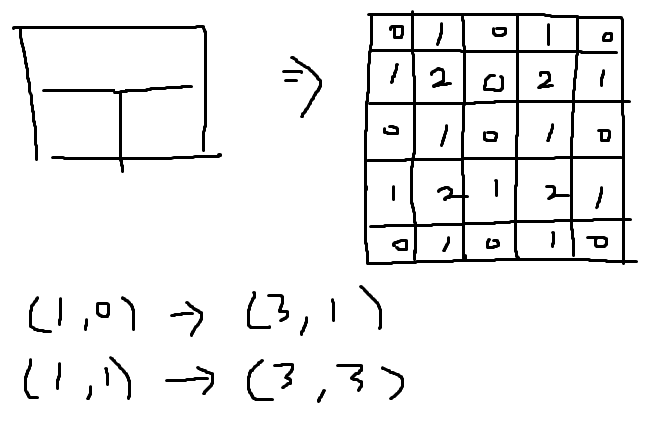 ⇒
0 1 0 1 0
1 2 0 2 1
0 1 0 1 0
1 2 1 2 1
0 1 0 1 0
(1,0) → (3,1)
(1,1) → (3,3)